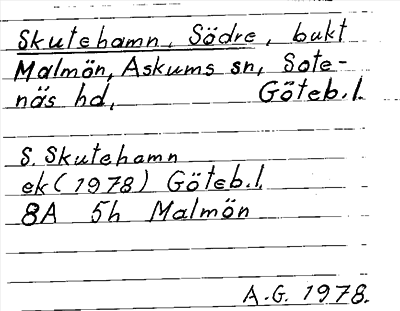 Skutehamn, Södre, bukt
Malmön, Askums sn, Sote-
näs hd, Göteb.l.
S. Skutehamn
ek (1978) Göteb.l.
8A 5h Malmön
A.G. 1978.